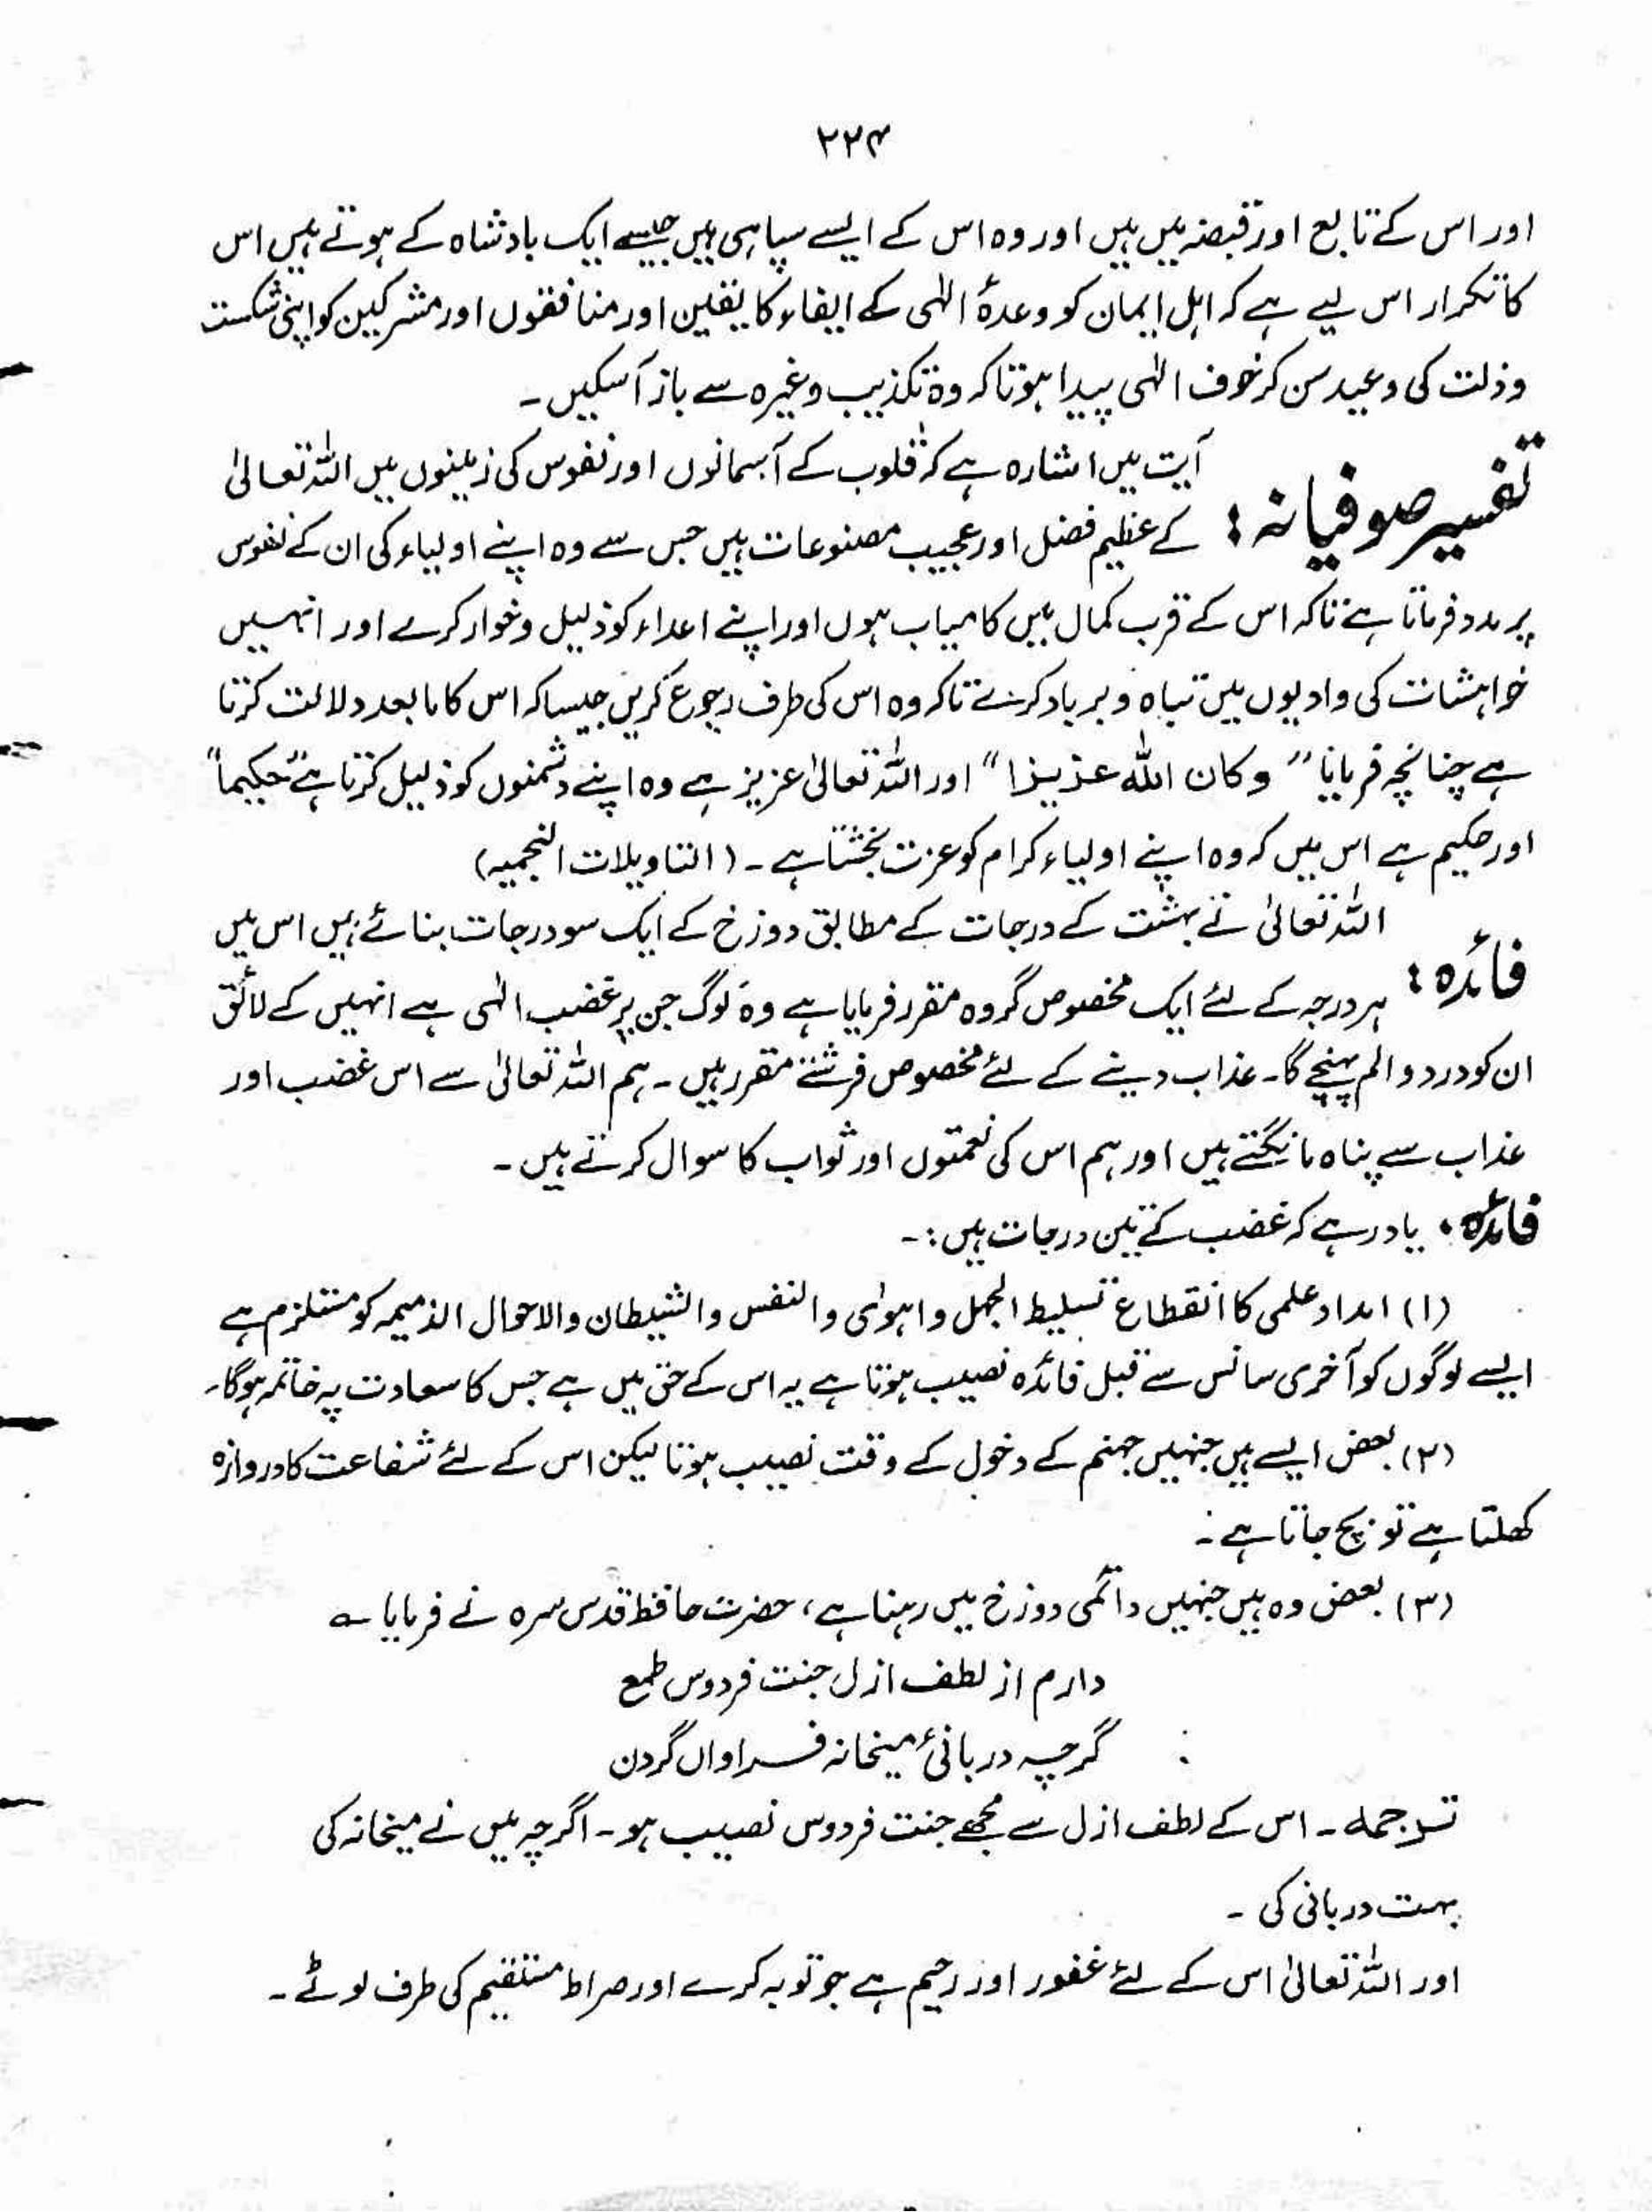 ۲۲۴
اور اس کے تابع اور قبضہ میں ہیں اور وہ اس کے ایسے سپاہی ہیں جیسے ایک بادشاہ کے ہوتے ہیں اس
کا تکرار اس لیے ہے کہ اہل ایمان کو وعدۂ الٰہی کے ایفاء کا یقین اور منافقوں اور مشرکین کو اپنی شکست
و ذلت کی وعید سن کر خوف الٰہی پیدا ہو تاکہ وہ تکذیب وغیرہ سے باز آسکیں۔
تفسیر صوفیانہ: آیت میں اشارہ ہے کہ قلوب کے آسمانوں اور نفوس کی زمینوں میں اللہ تعالیٰ
کے عظیم فضل اور عجیب مصنوعات ہیں جس سے وہ اپنے اولیاء کی ان کے نفوس
پر مدد فرماتا ہے تاکہ اس کے قرب کمال میں کامیاب ہوں اور اپنے اعداء کو ذلیل و خوار کرے اور انہیں
خواہشات کی وادیوں میں تباہ و برباد کرے تاکہ وہ اس کی طرف رجوع کریں جیسا کہ اس کا مابعد دلالت کرتا
ہے چنانچہ فرمایا " وکان اللہ عزیزا " اور اللہ تعالیٰ عزیز ہے وہ اپنے دشمنوں کو ذلیل کرتا ہے "حکیما"
اور حکیم ہے اس میں کہ وہ اپنے اولیاء کرام کو عزت بخشتا ہے۔ (التاویلات النجمیہ)
فائدہ: اللہ تعالیٰ نے بہشت کے درجات کے مطابق دوزخ کے ایک سو درجات بنائے ہیں اس میں
ہر درجہ کے لئے ایک مخصوص گروہ مقرر فرمایا ہے وہ لوگ جن پر غضب الٰہی ہے انہیں کے لائق
ان کو درد و الم پہنچے گا۔ عذاب دینے کے لئے مخصوص فرشتے مقرر ہیں۔ ہم اللہ تعالیٰ سے اس غضب اور
عذاب سے پناہ مانگتے ہیں اور ہم اس کی نعمتوں اور ثواب کا سوال کرتے ہیں۔
فائدہ: یاد رہے کہ غضب کے تین درجات ہیں :۔
(۱) امداد علمی کا انقطاع تسلیط الجہل واہوٰی والنفس والشیطان والاحوال الذمیمہ کو مستلزم ہے
ایسے لوگوں کو آخری سانس سے قبل فائدہ نصیب ہوتا ہے یہ اس کے حق میں ہے جس کا سعادت پہ خاتمہ ہوگا۔
(۲) بعض ایسے ہیں جنہیں جہنم کے دخول کے وقت نصیب ہوتا لیکن اس کے لئے شفاعت کا دروازہ
کھلتا ہے تو بچ جاتا ہے :
(۳) بعض وہ ہیں جنہیں دائمی دوزخ میں رہنا ہے، حضرت حافظ قدس سرہ نے فرمایا ؎
دارم از لطف ازل جنت فردوس طمع
گرچہ دربانئ میخانہ فراواں گردن
ترجمہ ۔ اس کے لطف ازل سے مجھے جنت فردوس نصیب ہو۔ اگرچہ میں نے میخانہ کی
بہت دربانی کی ۔
اور اللہ تعالیٰ اس کے لئے غفور اور رحیم ہے جو توبہ کرے اور صراط مستقیم کی طرف لوٹے۔